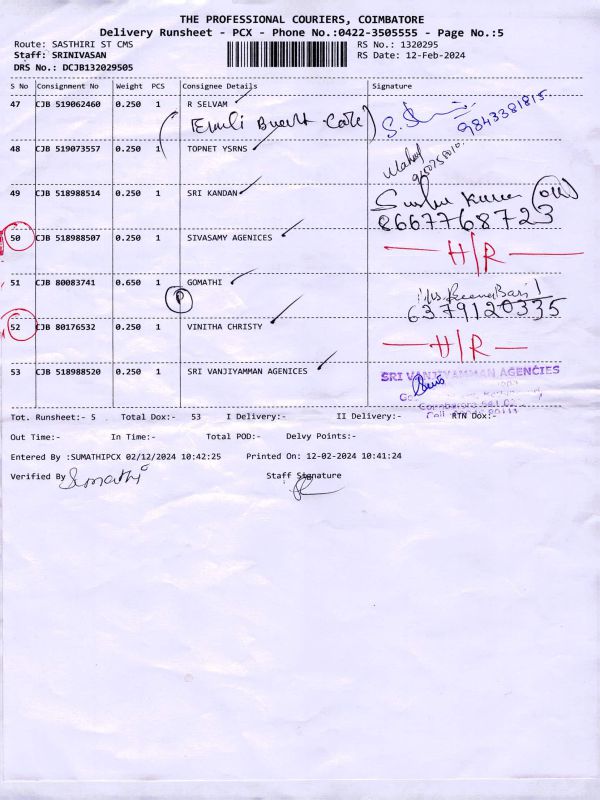 THE PROFESSIONAL COURIERS, COIMBATORE
Delivery Runsheet - PCX - Phone No.:0422-3505555 - Page No.:5
Route: SASTHIRI ST CMS RS No.: 1320295
Staff: SRINIVASAN RS Date: 12-Feb-2024
DRS No.: DCJB132029505
S No Consignment No Weight PCS Consignee Details Signature
47 CJB 519062460 0.250 1 R SELVAM
9843381815
48 CJB 519073557 0.250 1 TOPNET YSRNS
49 CJB 518988514 0.250 1 SRI KANDAN
8667768723
50 CJB 518988507 0.250 1 SIVASAMY AGENICES
H/R
51 CJB 80083741 0.650 1 GOMATHI
P
6379120335
52 CJB 80176532 0.250 1 VINITHA CHRISTY
H/R
53 CJB 518988520 0.250 1 SRI VANJIYAMMAN AGENICES
SRI VANJIYAMMAN AGENCIES
Tot. Runsheet:- 5 Total Dox:- 53 I Delivery:- II Delivery:- RTN Dox:-
Out Time:- In Time:- Total POD:- Delvy Points:-
Entered By :SUMATHIPCX 02/12/2024 10:42:25 Printed On: 12-02-2024 10:41:24
Verified By Sumathi Staff Signature